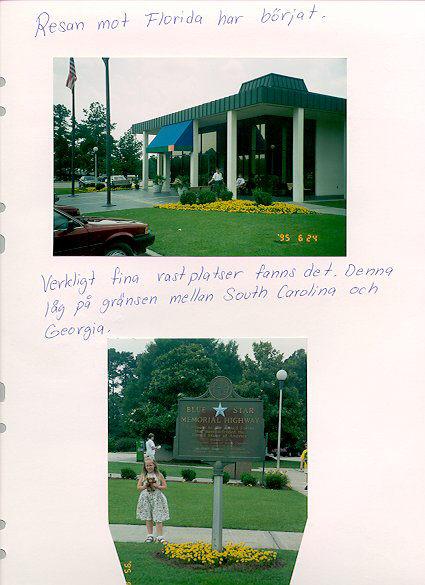 Resan mot Florida har börjat.
'95 6 24
Verkligt fina rastplatser fanns det. Denna
låg på gränsen mellan South Carolina och
Georgia.
BLUE STAR
MEMORIAL HIGHWAY
'95